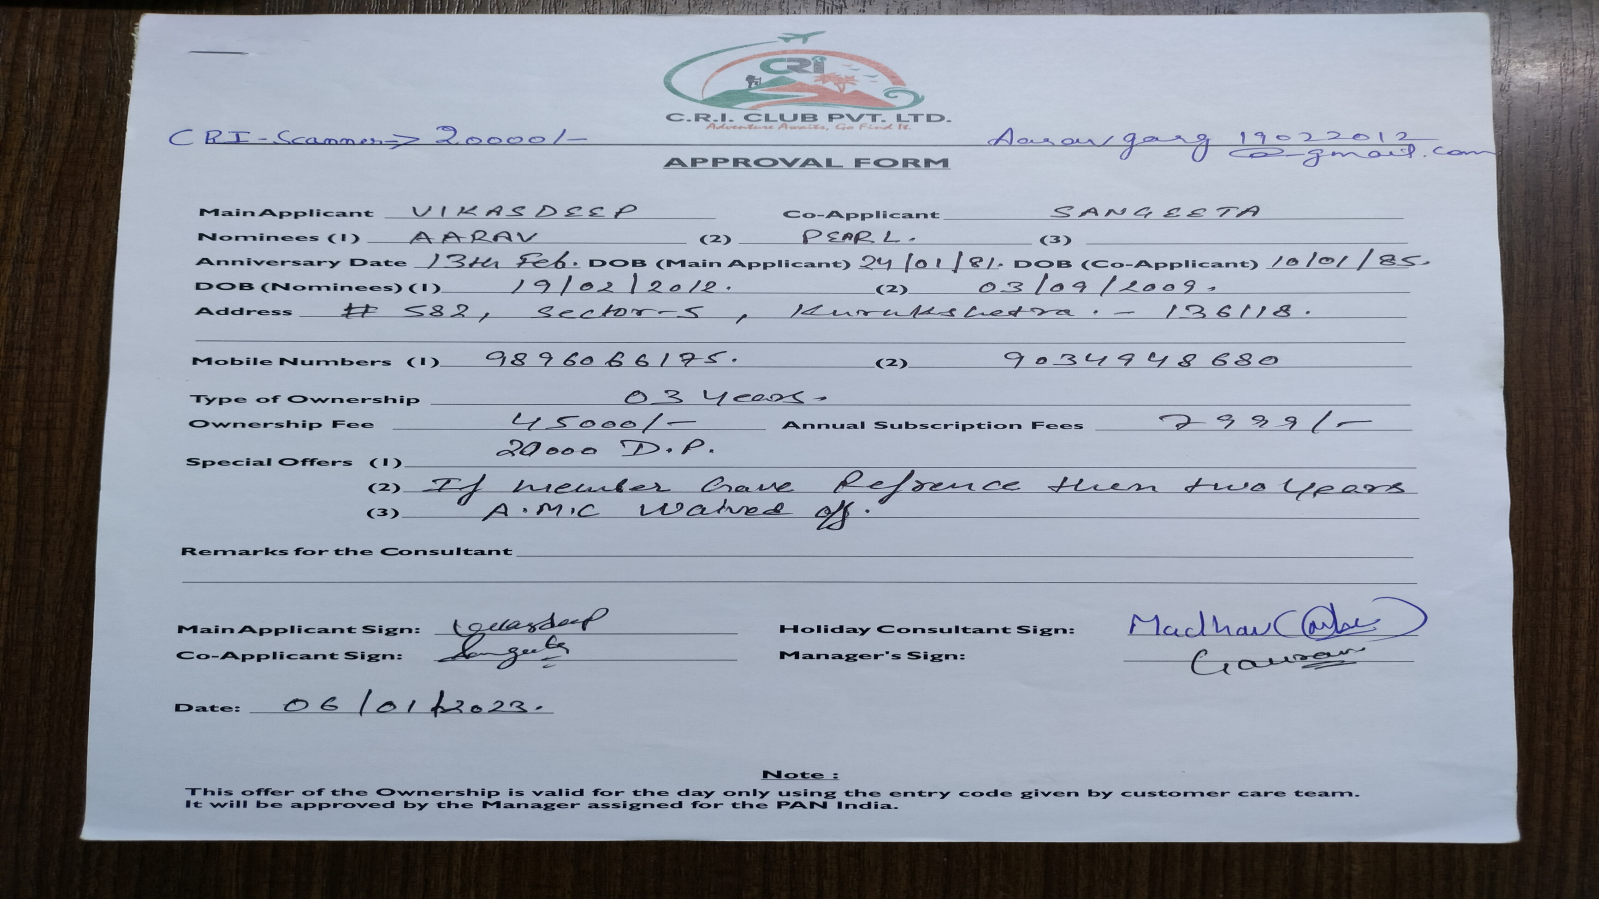 CRI
C.R.I. CLUB PVT. LTD.
Adventure Awaits, Go Find It.
CRI-Scanner→ 20000/- Aaravgarg 19022012
@gmail.com
APPROVAL FORM
Main Applicant VIKASDEEP Co-Applicant SANGEETA
Nominees (1) AARAV (2) PEARL. (3)
Anniversary Date 13th Feb. DOB (Main Applicant) 24/01/81. DOB (Co-Applicant) 10/01/85.
DOB (Nominees) (1) 19/02/2012. (2) 03/09/2009.
Address # 582, Sector-5, Kurukshetra. - 136118.
Mobile Numbers (1) 9896066175. (2) 9034948680
Type of Ownership 03 Years.
Ownership Fee 45000/- Annual Subscription Fees 7999/-
Special Offers (1) 20000 D.P.
(2) If member Gave Refrence then two Years
(3) A.M.C Waived off.
Remarks for the Consultant
Main Applicant Sign: Vikasdeep Holiday Consultant Sign: Madhav
Co-Applicant Sign: Sangeeta Manager's Sign: Gaurav
Date: 06/01/2023.
Note :
This offer of the Ownership is valid for the day only using the entry code given by customer care team.
It will be approved by the Manager assigned for the PAN India.